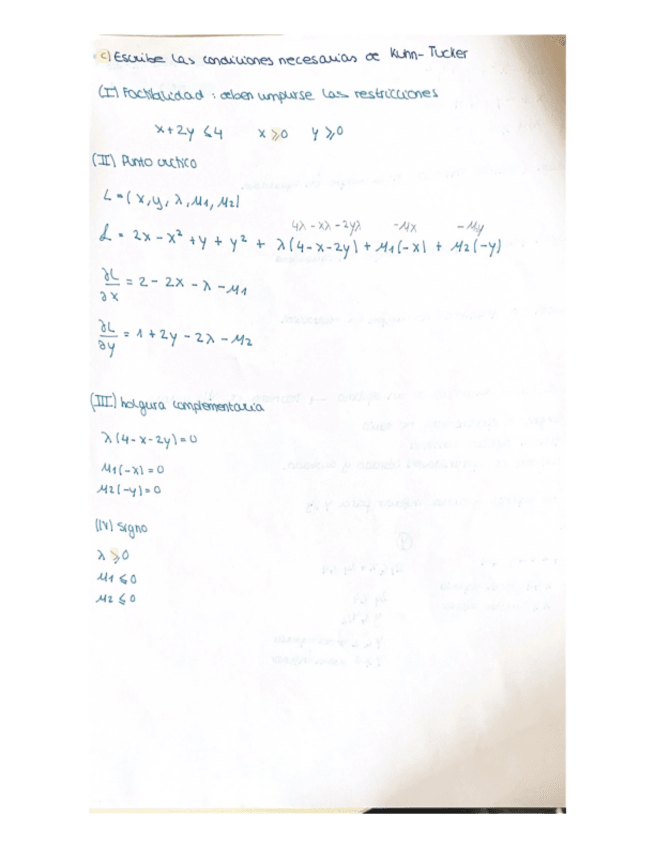 c) Escribe las condiciones necesarias de Kuhn-Tucker
(I) Factibilidad: deben umplirse las restricciones
x+2y ≤4 x ≥0 y ≥0
(II) Punto crítico
L = (x, y, λ, μ1, μ2)
4λ - xλ - 2yλ -μx -μy
L = 2x - x² + y + y² + λ(4-x-2y) + μ1(-x) + μ2(-y)
∂L/∂x = 2 - 2x - λ - μ1
∂L/∂y = 1 + 2y - 2λ - μ2
(III) holgura complementaria
λ(4-x-2y)=0
μ1(-x)=0
μ2(-y)=0
(IV) signo
λ ≥0
μ1 ≤0
μ2 ≤0